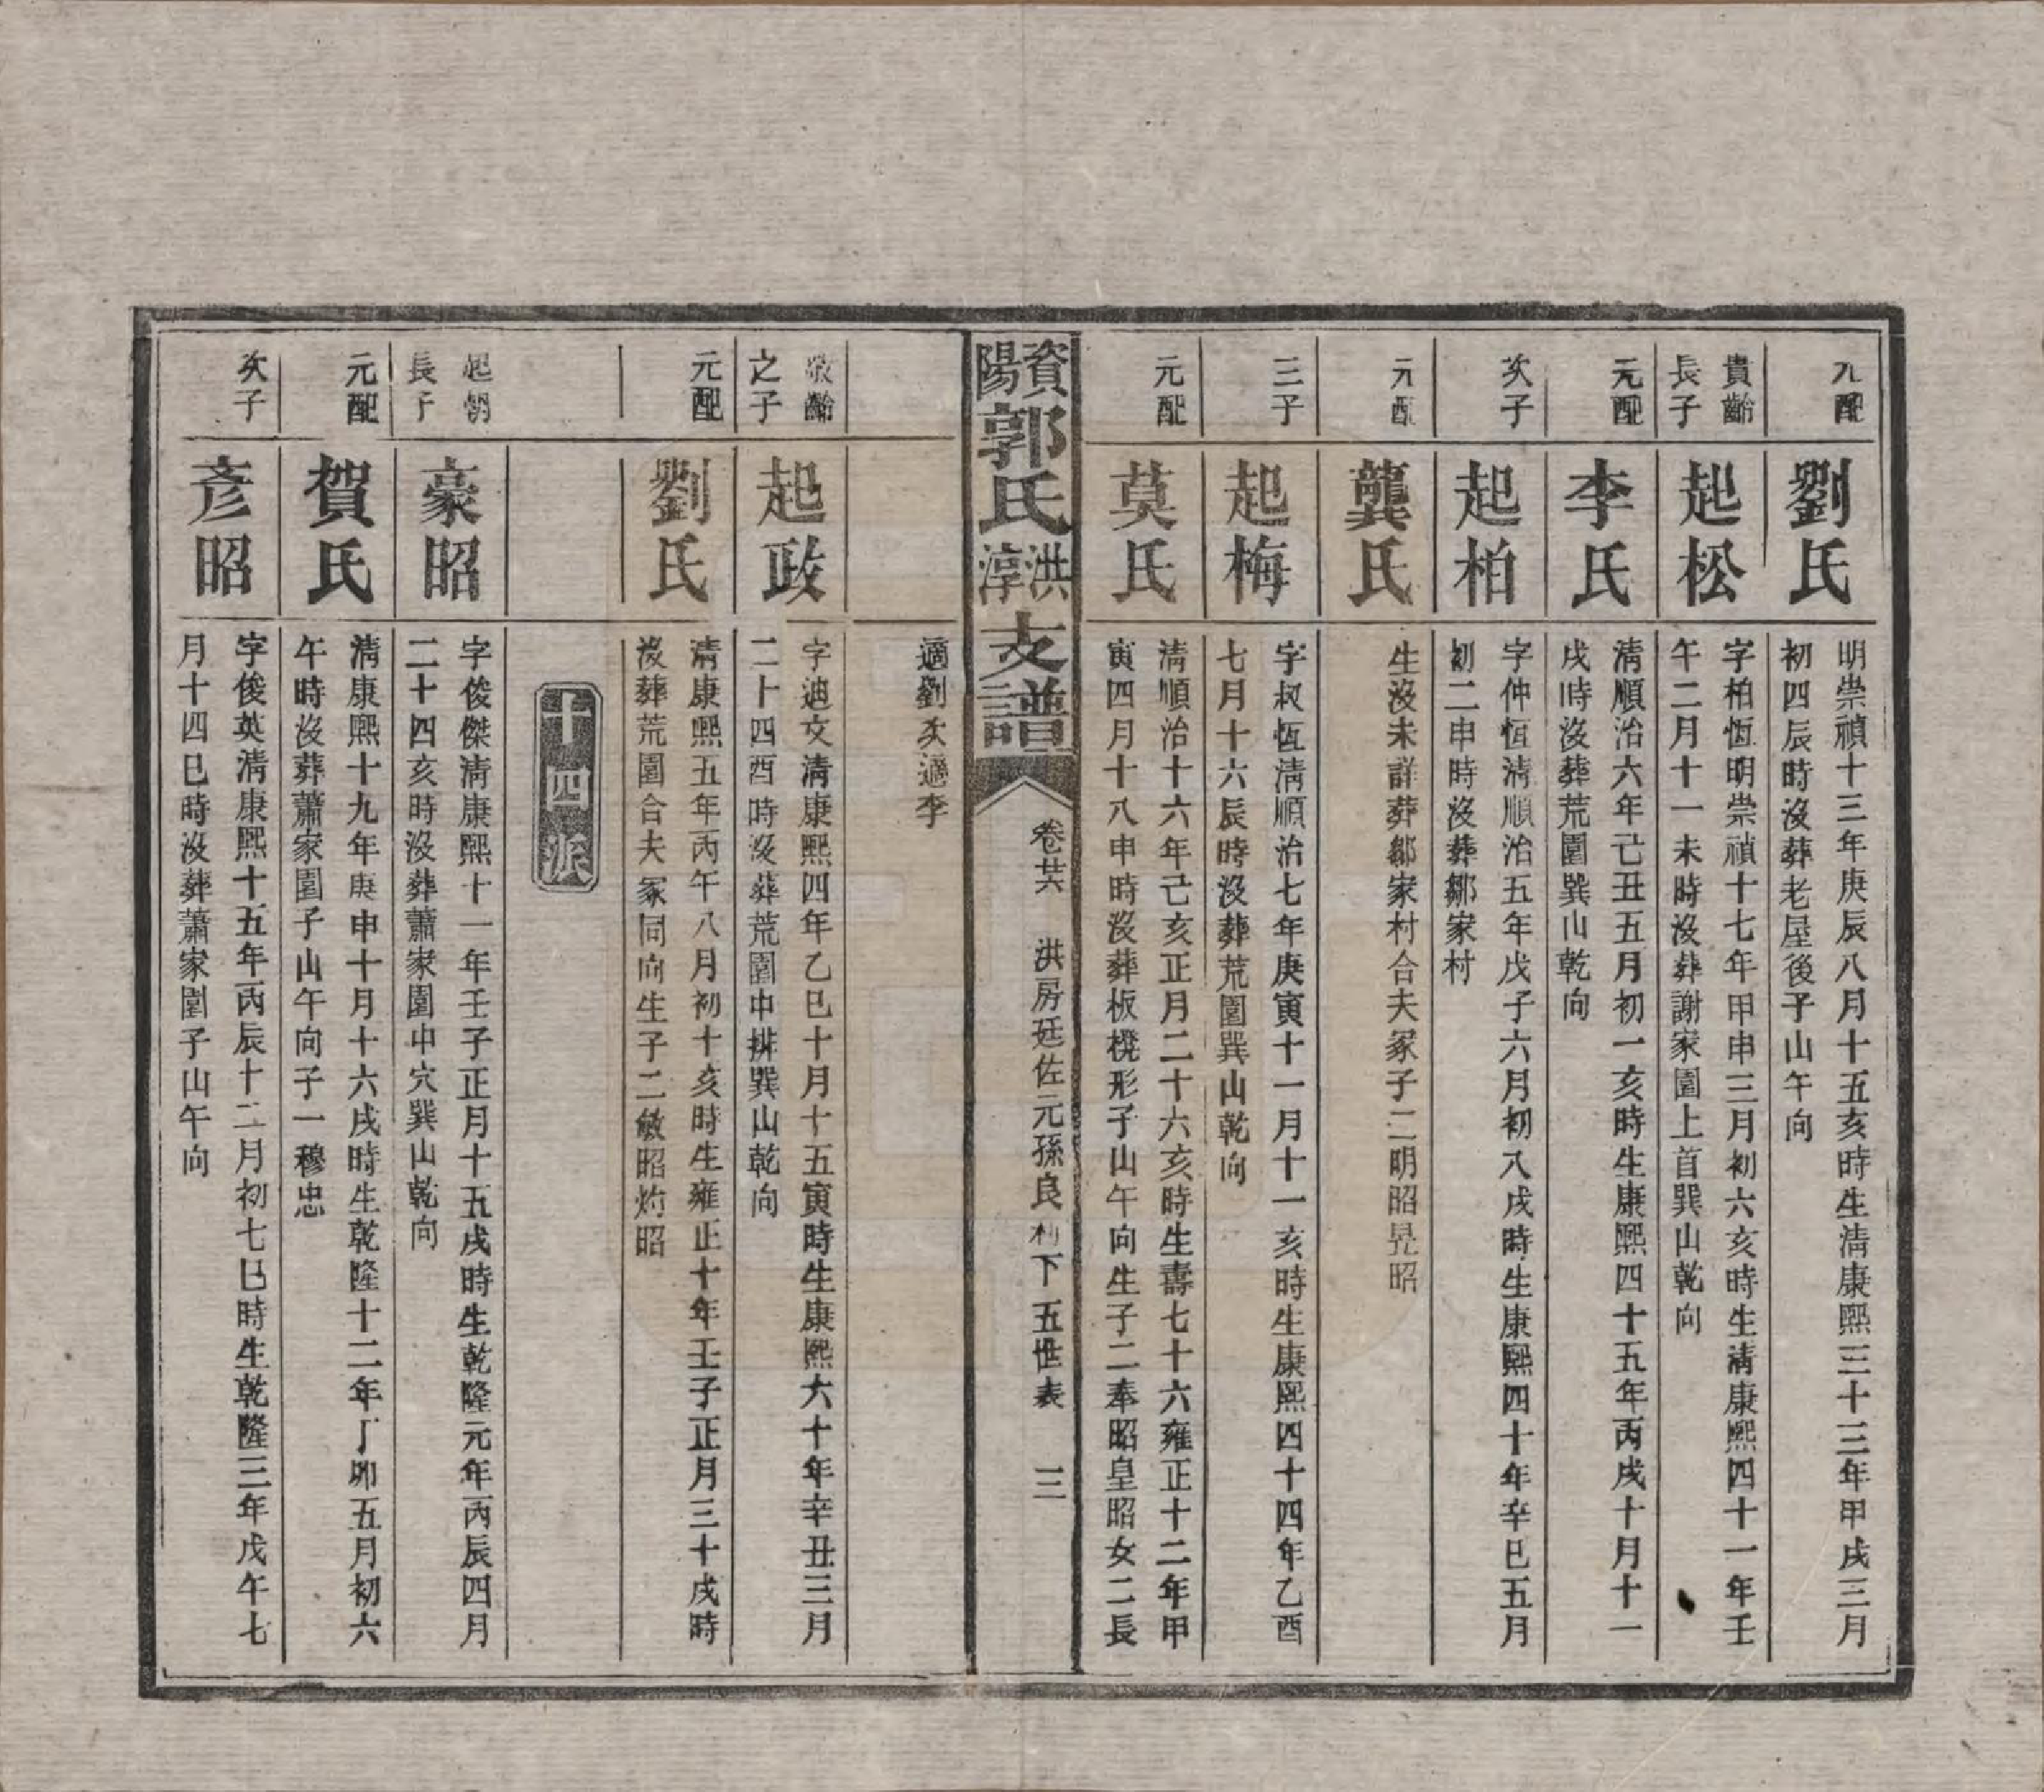 元配
劉氏
明崇禎十三年庚辰八月十五亥時生清康熙三十三年甲戌三月
初四辰時沒葬老屋後子山午向
貴齡
長子
起松
字柏恆明崇禎十七年甲申三月初六亥時生清康熙四十一年壬
午二月十一未時沒葬謝家園上首巽山乾向
元配
李氏
清順治六年己丑五月初一亥時生康熙四十五年丙戌十月十一
戌時沒葬荒園巽山乾向
次子
起柏
字仲恆清順治五年戊子六月初八戌時生康熙四十年辛巳五月
初二申時沒葬鄒家村
元配
龔氏
生沒未詳葬鄒家村合夫冢子二明昭晃昭
三子
起梅
字叔恆清順治七年庚寅十一月十一亥時生康熙四十四年乙酉
七月十六辰時沒葬荒園巽山乾向
元配
莫氏
清順治十六年己亥正月二十六亥時生壽七十六雍正十二年甲
寅四月十八申時沒葬板櫈形子山午向生子二奉昭皇昭女二長
資陽郭氏洪淳支譜
卷廿六 洪房廷佐元孫良利下五世表 三
適劉次適李
敬齡
之子
起政
字迪文清康熙四年乙巳十月十五寅時生康熙六十年辛丑三月
二十四酉時沒葬荒園中排巽山乾向
元配
劉氏
清康熙五年丙午八月初十亥時生雍正十年壬子正月三十戌時
沒葬荒園合夫冢同向生子二敏昭灼昭
十四派
起朝
長子
豪昭
字俊傑清康熙十一年壬子正月十五戌時生乾隆元年丙辰四月
二十四亥時沒葬蕭家園中穴巽山乾向
元配
賀氏
清康熙十九年庚申十月十六戌時生乾隆十二年丁卯五月初六
午時沒葬蕭家園子山午向子一穆忠
次子
彥昭
字俊英清康熙十五年丙辰十二月初七巳時生乾隆三年戊午七
月十四巳時沒葬蕭家園子山午向